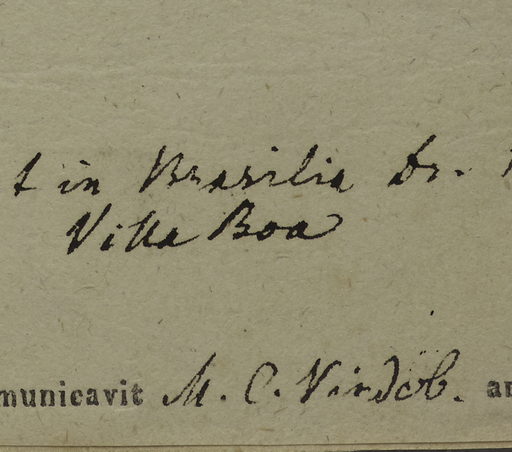 t in Brasilia Dr.
Villa Boa
municavit M. C. Vindob. an